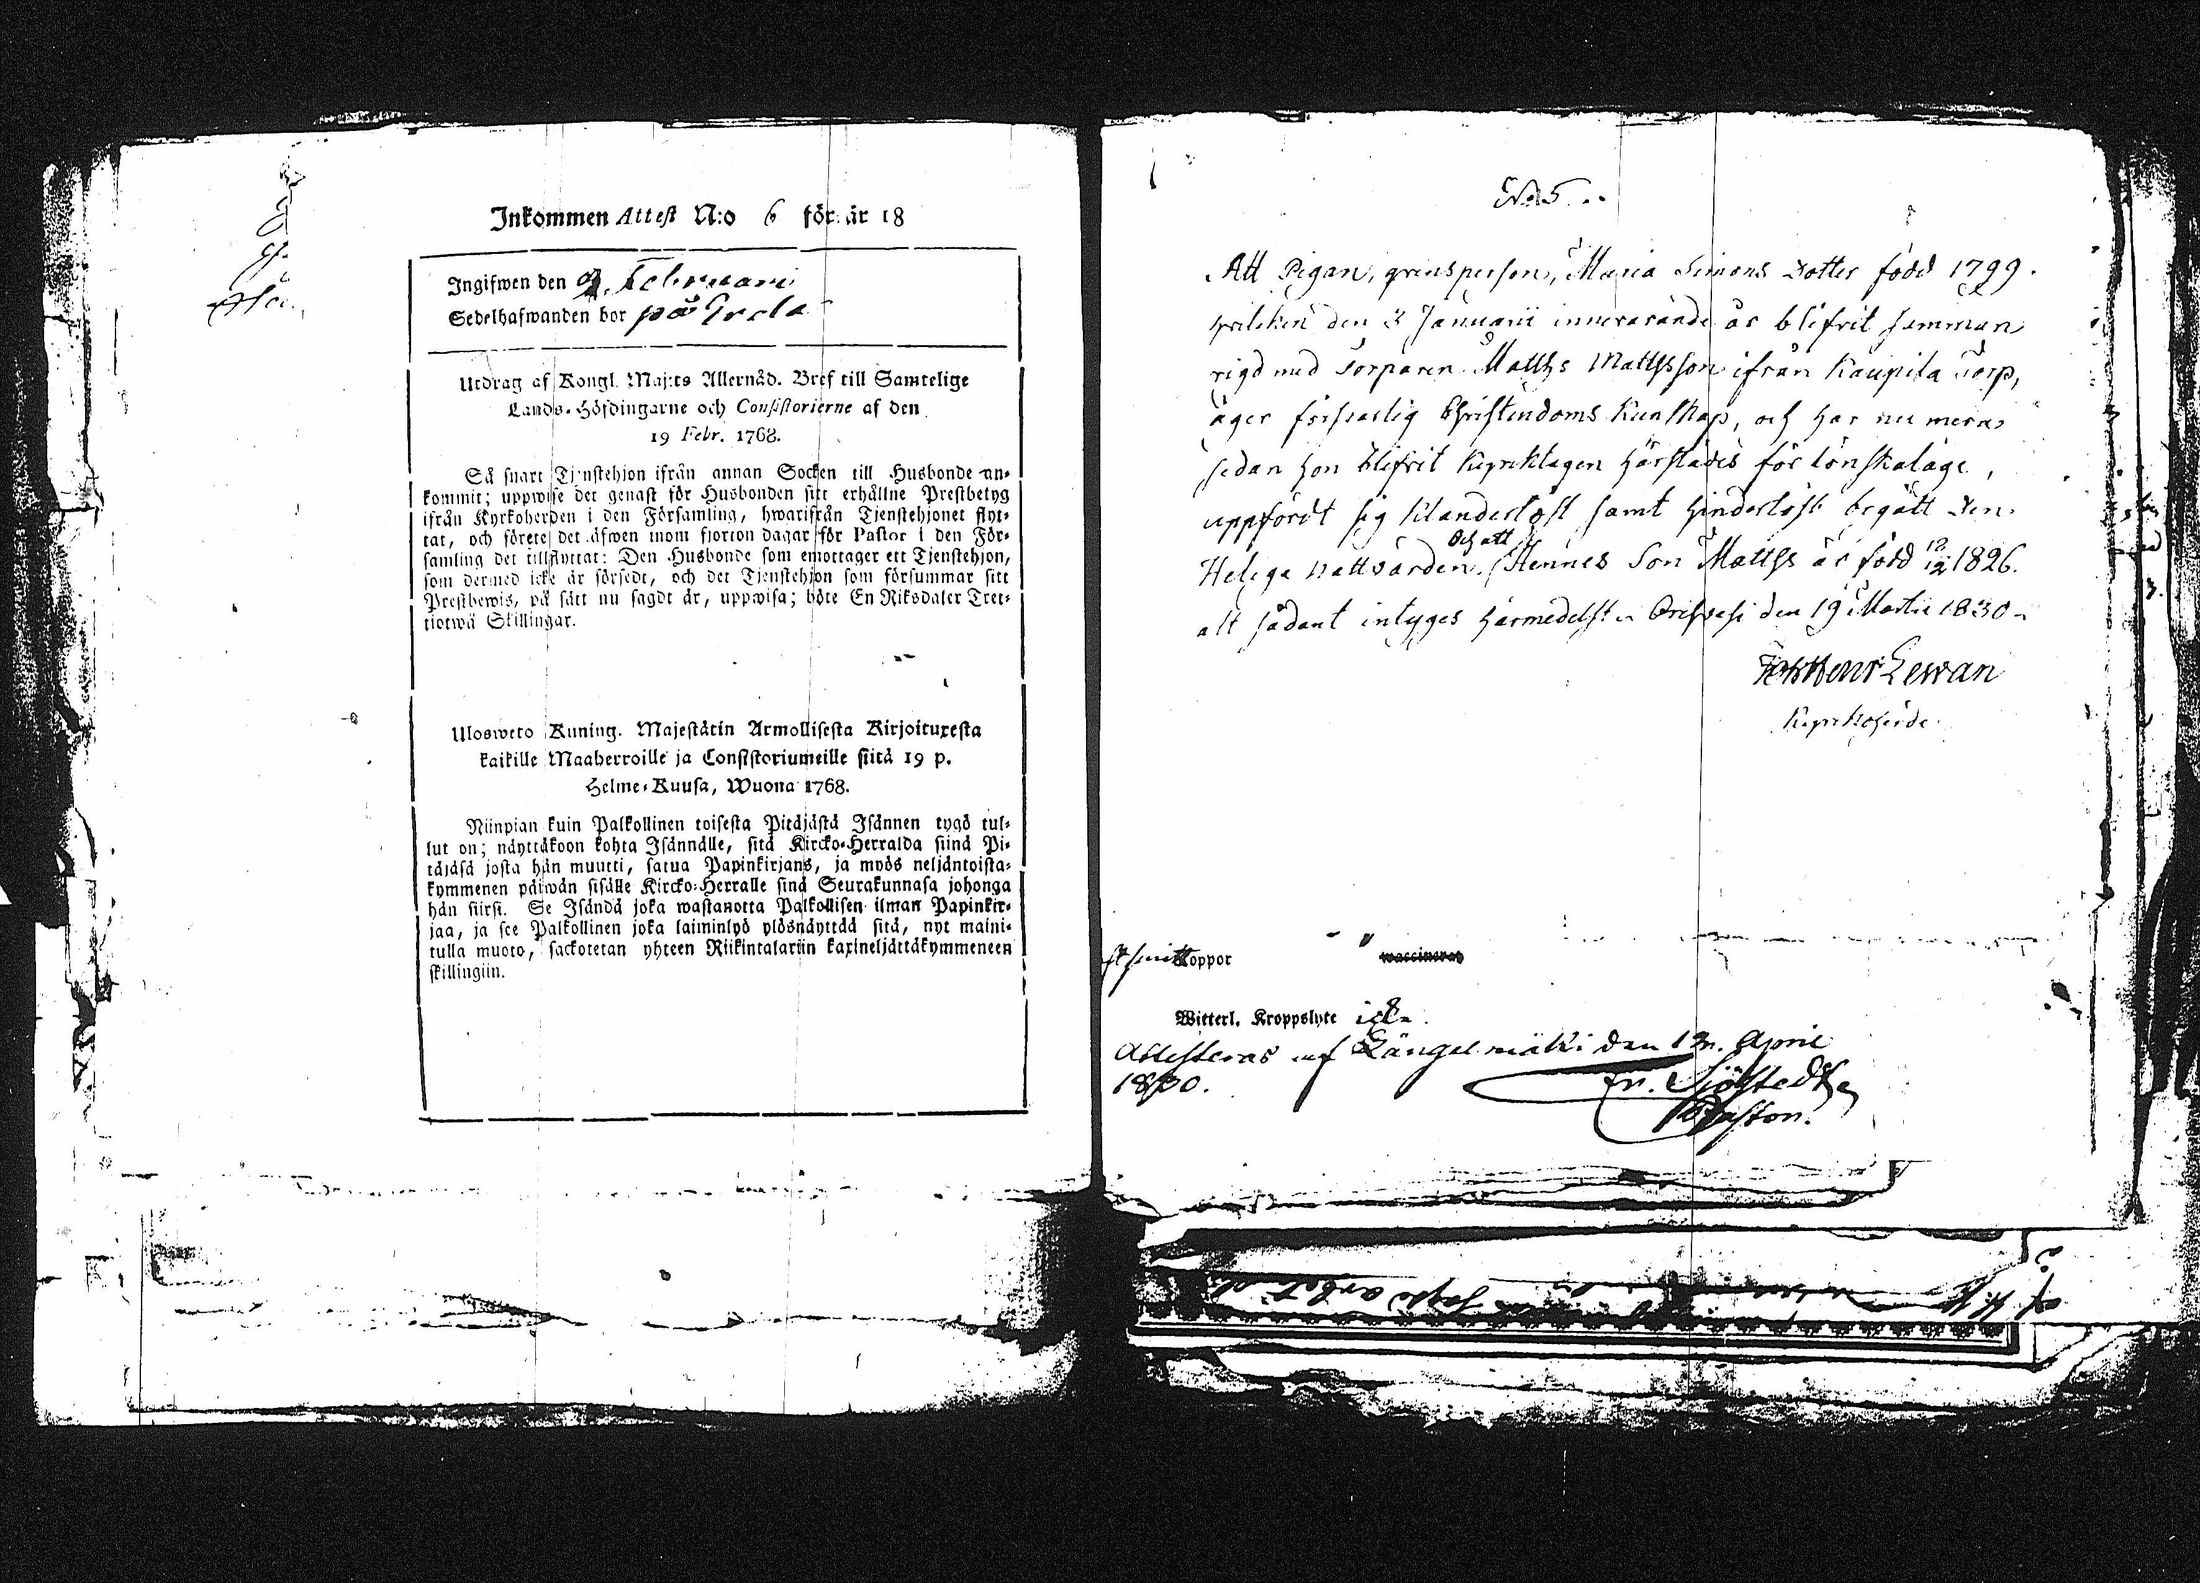 Inkommen Attest N:o 6 för år 18
Ingifwen den 9. Februari
Sedelhafwanden bor på
Utdrag af Kongl. Maj:ts Allernåd. Bref till Samtelige
Lands-Höfdingarne och Consistorierne af den
19 Febr. 1768.
Så snart Tjenstehjon ifrån annan Socken till Husbonde an-
kommit; uppwise det genast för Husbonden sitt erhållne Prestbetyg
ifrån Kyrkoherden i den Församling, hwarifrån Tjenstehjonet flyt-
tat, och förete det äfwen inom fjorton dagar för Pastor i den För-
samling det tillflyttat: Den Husbonde som emottager ett Tjenstehjon,
som dermed icke är försedt, och det Tjenstehjon som försummar sitt
Prestbewis, på sätt nu sagdt är, uppwisa; böte En Riksdaler Tret-
tiotwå Skillingar.
Ulosweto Kuning. Majestätin Armollisesta Kirjoituxesta
kaikille Maaherroille ja Consistoriumeille siitä 19 p.
Helme-Kuusa, Wuona 1768.
Niinpian kuin Palkollinen toisesta Pitäjästä Isännen tygö tul-
lut on; näyttäkoon kohta Isännälle, sitä Kircko-Herralda siinä Pi-
täjäsä josta hän muutti, satua Papinkirjans, ja myös neljäntoista-
kymmenen päiwän sisälle Kircko-Herralle sinä Seurakunnasa johonga
hän siirsi. Se Isändä joka wastanotta Palkollisen ilman Papinkir-
jaa, ja see Palkollinen joka laiminlyö ylösnäyttää sitä, nyt maini-
tulla muoto, sackotetan yhteen Riikintalariin kaxineljättäkymmeneen
skillingiin.
No 5
Att Pigan, qvinsperson, Maria Simons Dotter född 1799.
hvilken den 3 Januarii innevarande år blifvit samman
vigd med Torparen Matths Mattsson ifrån Kaupila Torp,
äger försvarlig Christendoms Kunskap, och har nu mera
sedan hon blifvit Kyrktagen härstädes för lönskaläge,
uppfördt sig klanderlöst samt hinderlöst begått den
Och att
Heliga Nattvarden. Hennes Son Matths är född 12/12 1826.
alt sådant intyges härmedelst. Orihvesi den 19 Martii 1830
Henr Lewan
Kyrkoherde
Koppor
waccineras
Witterl. Kroppslyte icke
Attesteras af Längelmäki den 13. April
1830.
Fr. Sjöstedt
Pastor.